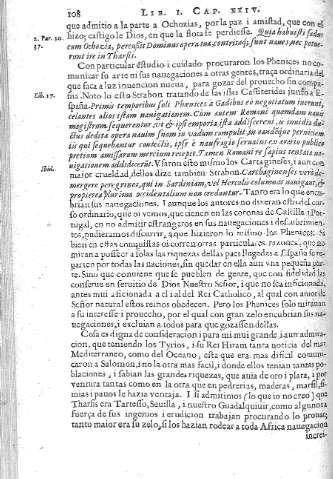 108 LIB. I. CAP. XXIV.
que admitio a la parte a Ochozias, por la paz i amistad, que con el
2. Par. 20. hizo; castigo le Dios, en que la flota se perdiesse. Quia habuisti fœdus
37. cum Ochozia, percussit Dominus opera tua, contritæq; sunt naues, nec potue-
runt ire in Tharsis.
Con particular estudio i cuidado procuraron los Phenices no co-
municar su arte ni sus nauegaciones a otras gentes, traça ordinaria del
que saca a luz inuencion nueua, para gozar del prouecho sin compa-
Lib. 17. Noto lo esto Strabon tratando de las islas Cassiterides junto a Es-
paña. Primis temporibus soli Phenices à Gadibus eò negotiatum ierunt,
celantes alios istam nauigationem. Cum autem Romani quendam naui
magistrum sequerentur
Dius dedita opera nauim suam in vadum compulit, in eandemque perniciem
iis qui sequebantur coniectis, ipse è naufragio seruatus ex ærario publico
pretium amissarum mercium recepit. Tamen Romani re sapius tentata na-
uigationem addidicerunt. Vsaron esto mismo los Cartagineses, i aun con
Ibid. maior crueldad, dellos dize tambien Strabon. Carthaginenses
mergere peregrinos, qui in Sardiniam, vel Herculis columnas nauigant, &
propterea plurima occidentalium non creduntur. Tanto era lo que encu-
brian sus nauegaciones. I aunque los autores no dixeran esto del cur-
so ordinario, que oi vemos, que tienen en las coronas de Castilla i Por-
tugal, en no admitir estrangeros en sus nauegaciones i descubrimien-
tos, pudieramos discurrir, a que hizieron lo mismo los Phenices. Si
bien en estas conquistas oi corren otras particulares razones, que no
miran a posseer a solas las riquezas dellas pues llegadas a España se re-
parten por todas las naciones, sin quedar en ella aun vna pequeña par-
te. Sino que conuiene que se pueblen de gente, que con fidelidad las
conserue en seruicio de Dios Nuestro Señor, i que no sea inficionada,
antes mui aficionada a el i al del Rei Catholico, al qual con amor de
Señor natural estos reinos obedecen. Pero los Phenices solo miraron
a su interesse i prouecho, por el qual con gran zelo encubrian sus na-
uegaciones, i excluian a todos para que gozassen dellas.
Cosa es digna de consideracion i para mi mui grande, i aun admira-
cion, que teniendo los Tyrios, i su Rei Hiram tanta noticia del mar
Mediterraneo, como del Oceano, esta que era mas dificil comuni-
caron a Salomon, i no la otra mas facil, i donde ellos tenian tantas po-
blaciones, i sabian las grandes riquezas, que auia de oro i plata, i por
ventura tantas como en la otra que en pedrerias, maderas, marfil, si-
mias i pauos le hazia ventaja. I si admitimos (lo que io no creo) que
Tharsis era Tartesso, Seuilla, i nuestro Guadalquiuir, como algunos a
fuerça de sus ingenios i erudicion trabajan procurando lo prouar;
tanto maior era su zelo, si los hazian rodear a toda Africa nauegacion
increi-